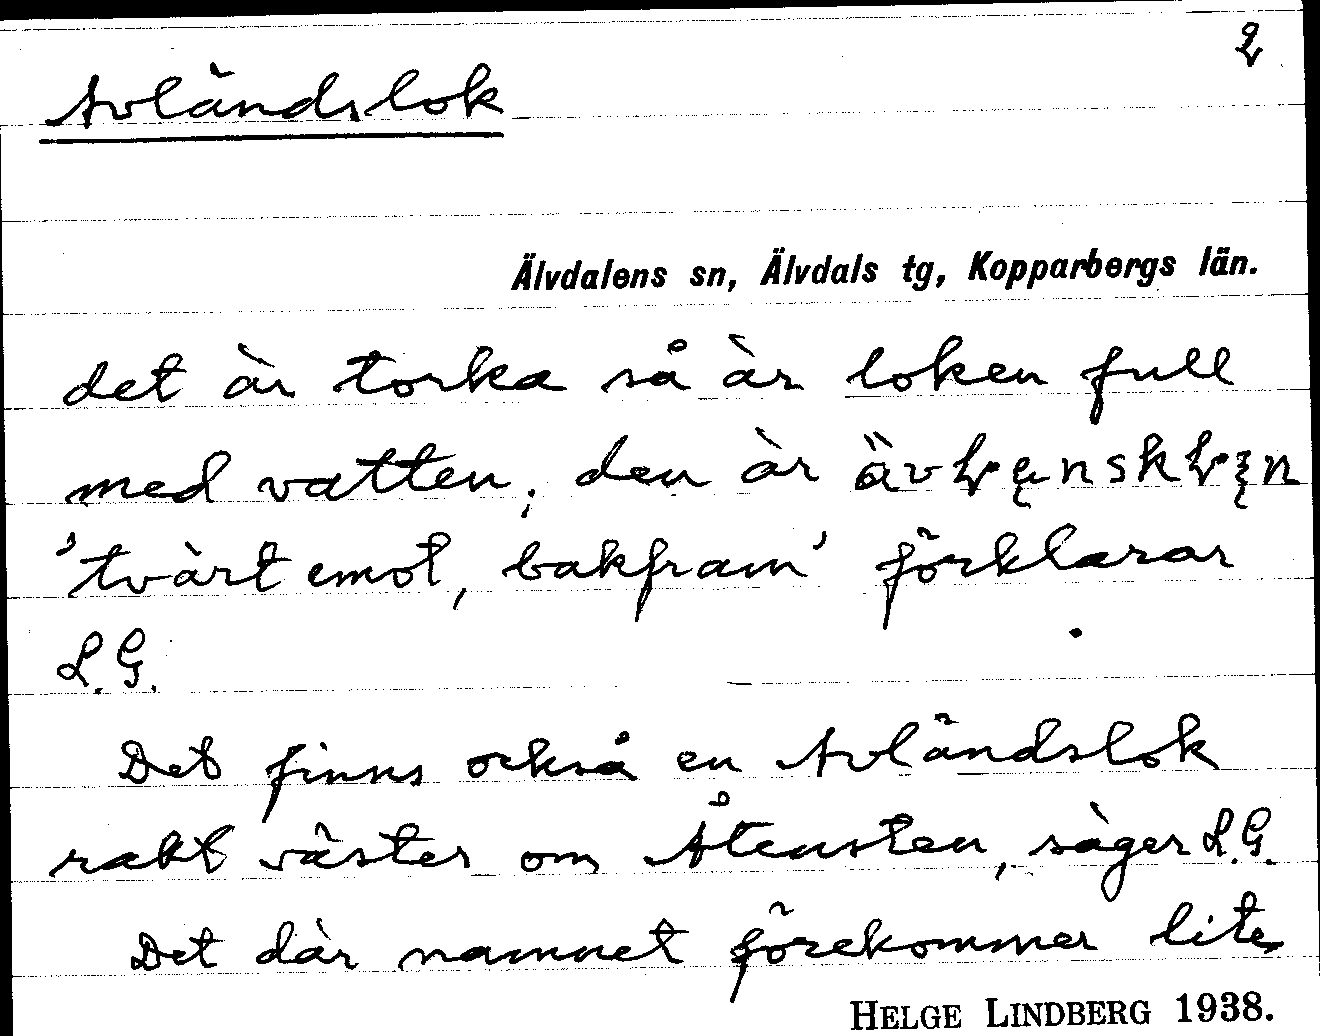 2
Avländslok
Älvdalens sn, Älvdals tg, Kopparbergs län.
det är torka så är loken full
med vatten; den är
'tvärt emot, bakfram' förklarar
L.G.
Det finns också en Avländslok
rakt väster om Åtensten, säger L.G.
Det där namnet förekommer lite
HELGE LINDBERG 1938.